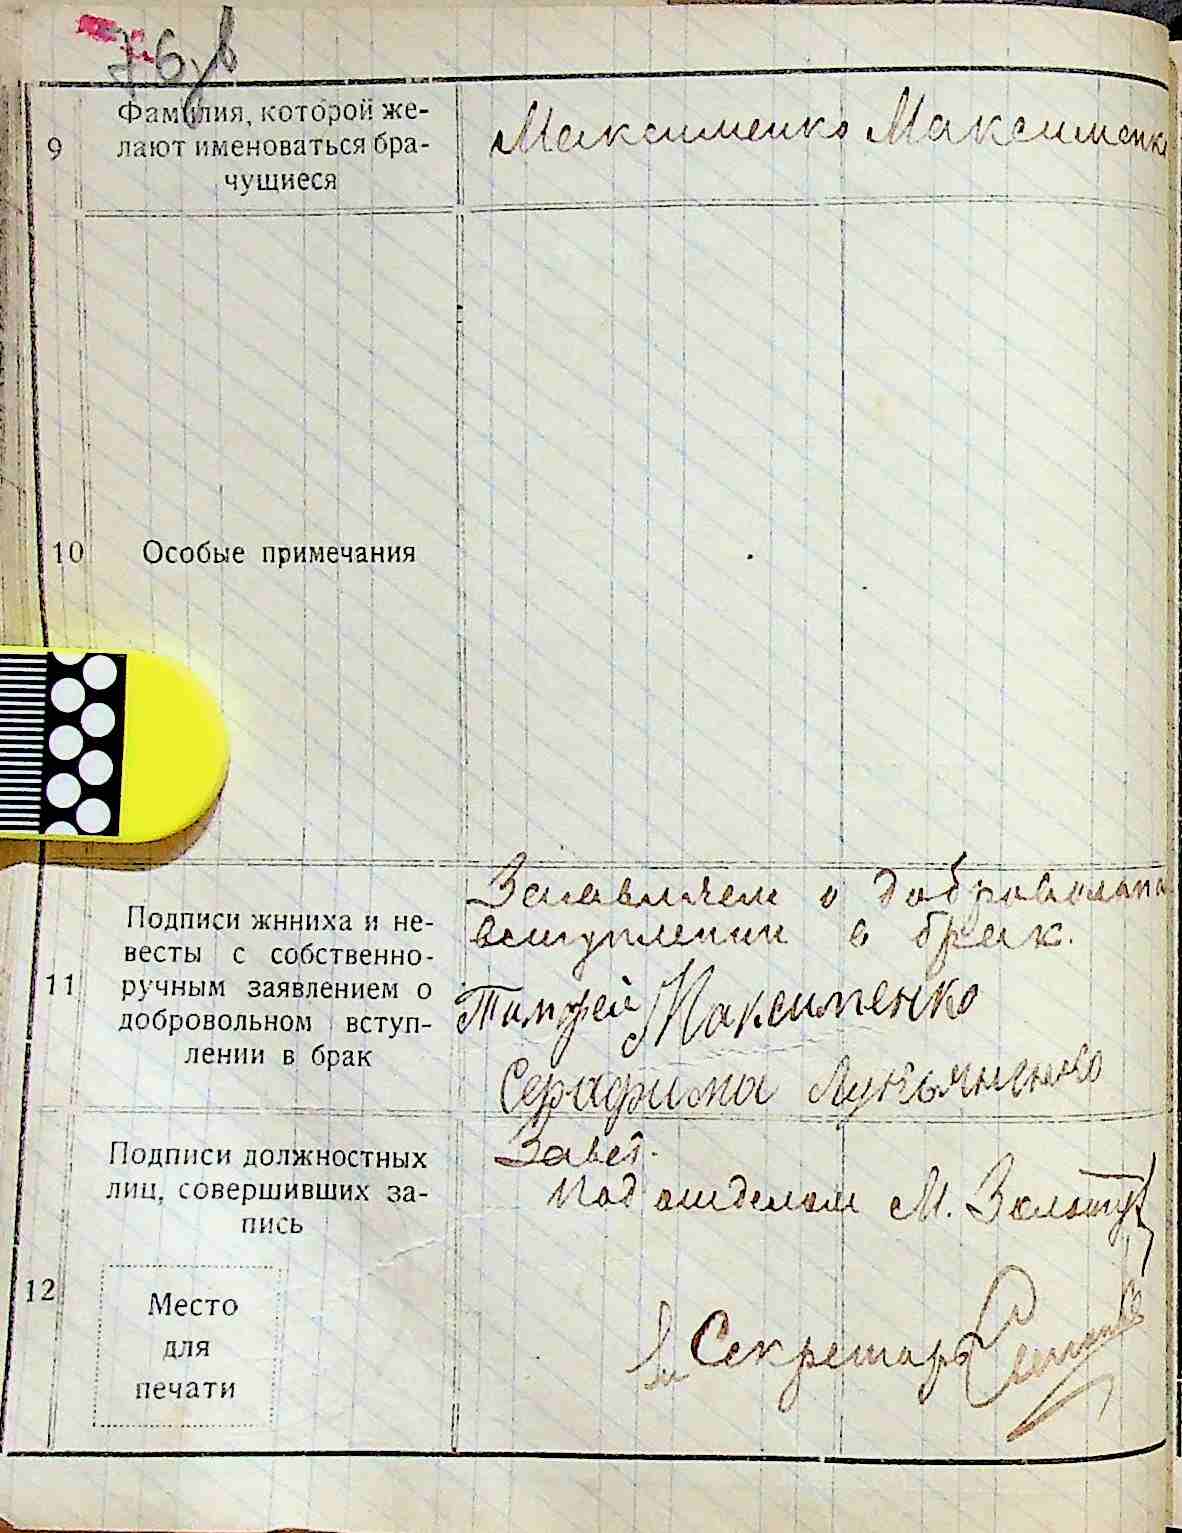 76 в
9
Фамилия, которой же-
лают именоваться бра-
чущиеся
Максименко Максименко
10
Особые примечания
11
Подписи жнниха и не-
весты с собственно-
ручным заявлением о
добровольном вступ-
лении в брак
Заявляем о добровольно
вступлении в брак.
Тимофей Максименко
Серафима
12
Подписи должностных
лиц, совершивших за-
пись
Завет.
Под отделом М.
Секретарь
Место
для
печати